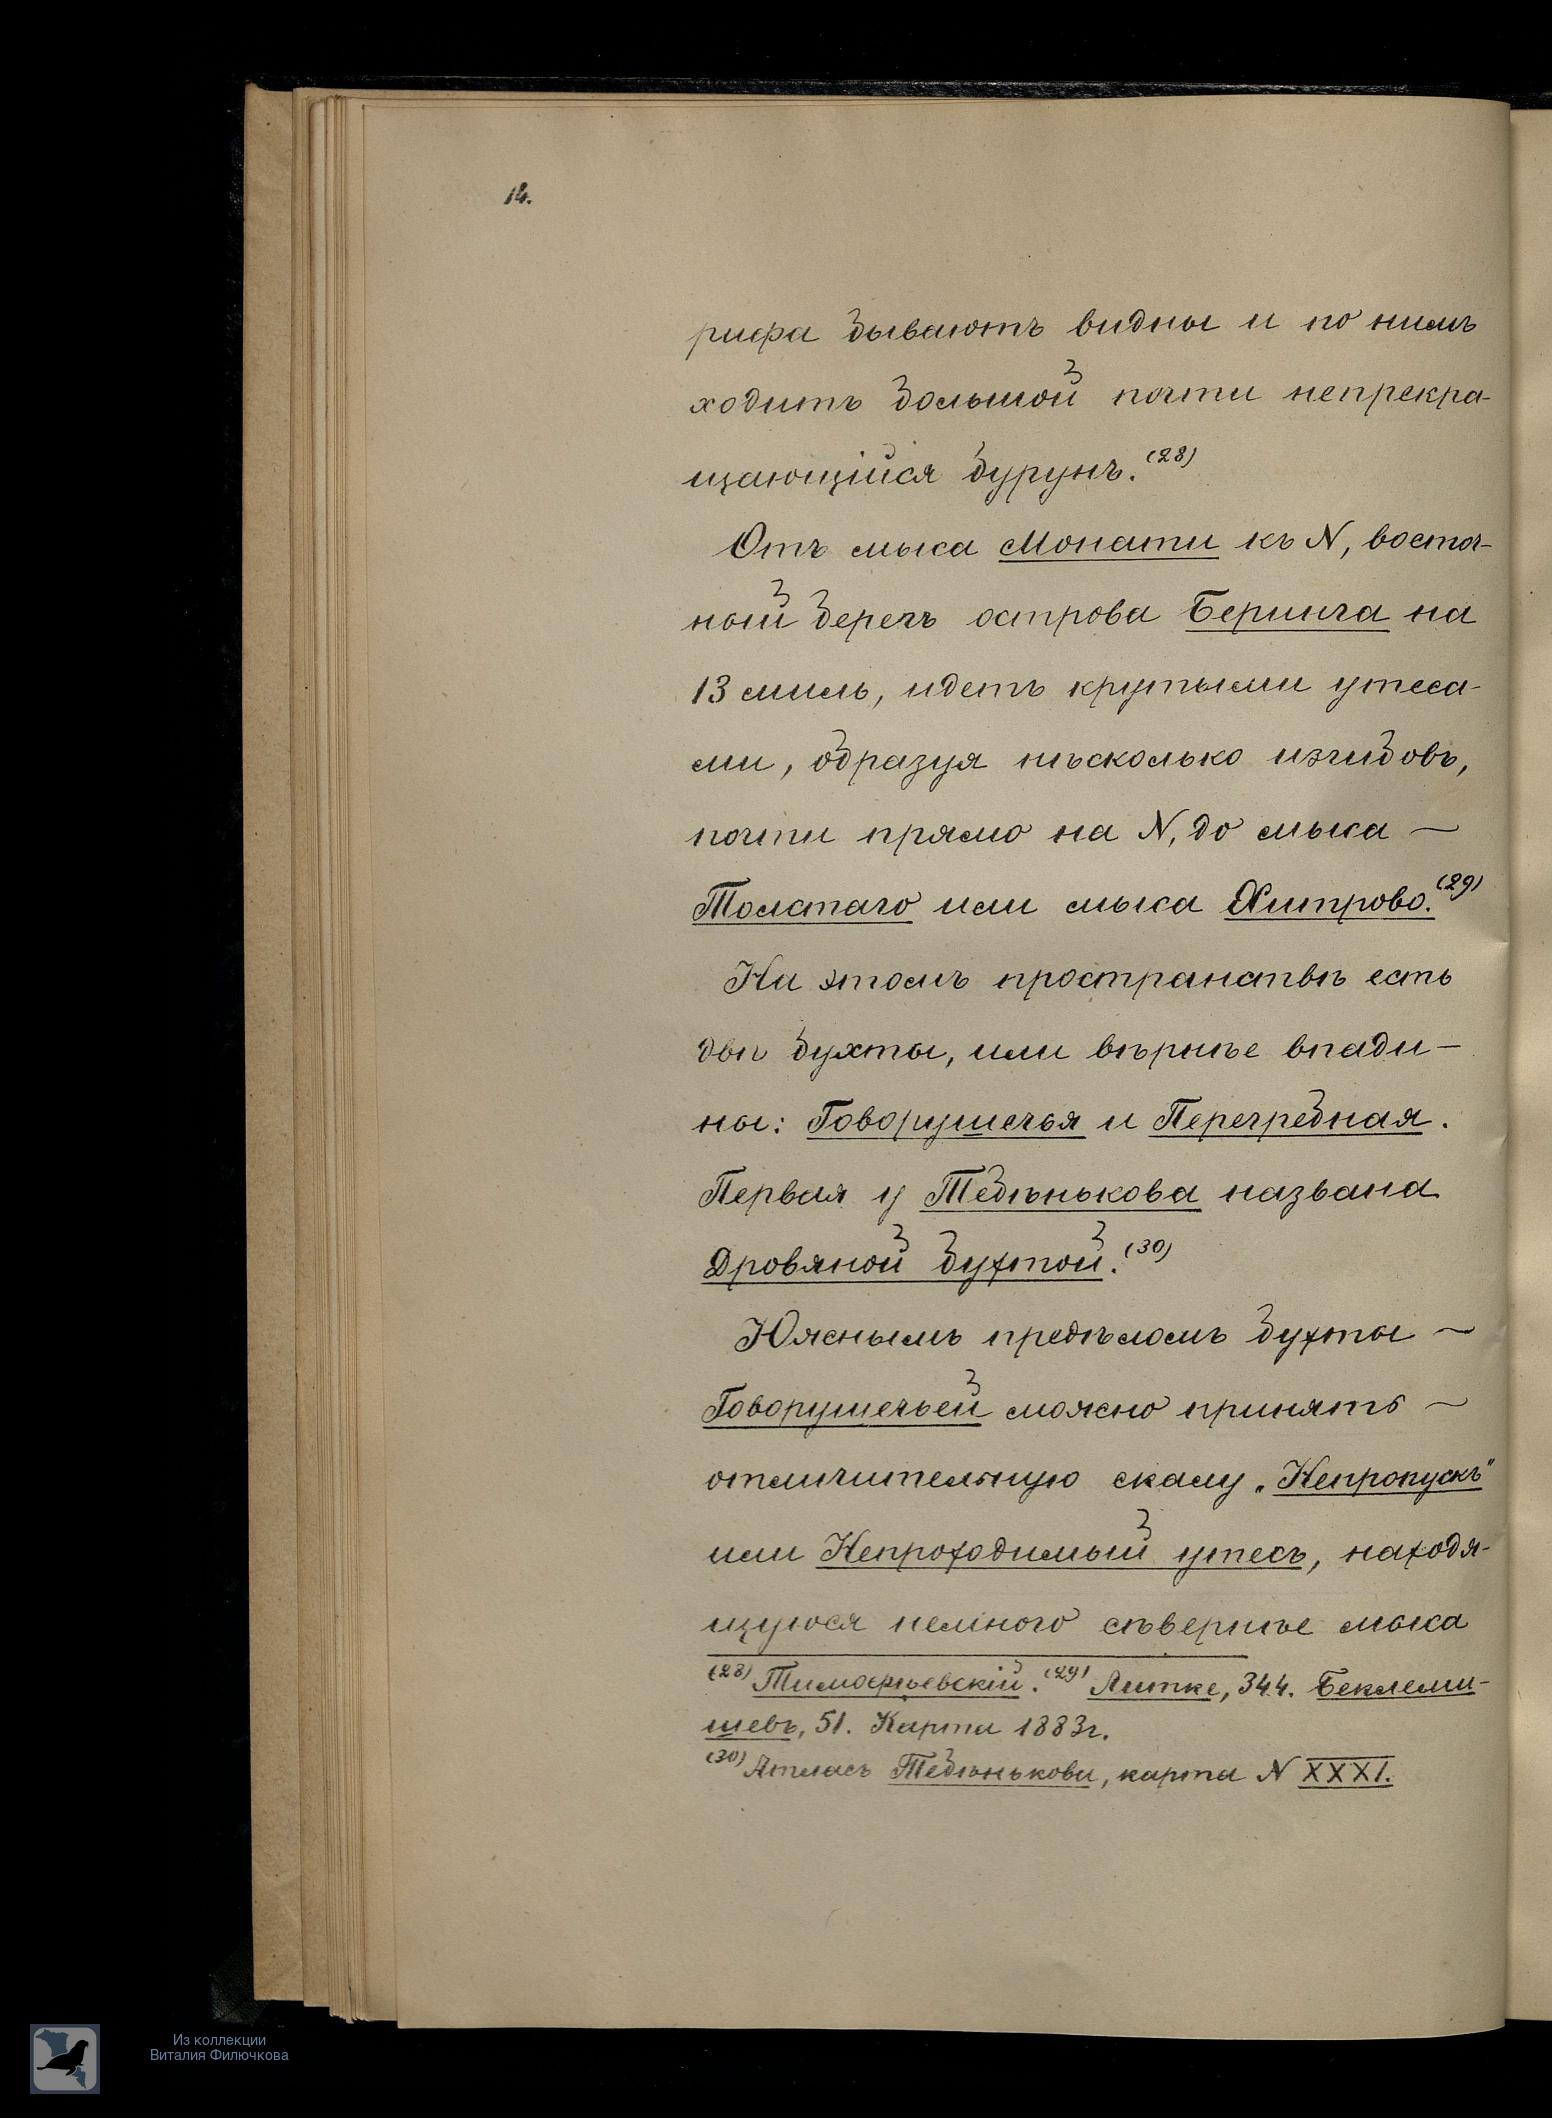 14.
рифа бываютъ видны и по нимъ
ходитъ большой почти непрекра-
щающійся бурунъ.(28)
Отъ мыса Монати къ N, восточ-
ный берегъ острова Беринга на
13 миль, идетъ крутыми утеса-
ми, образуя нѣсколько изгибовъ,
почти прямо на N, до мыса —
Толстаго или мыса Хитрово.(29)
На этомъ пространствѣ есть
двѣ бухты, или вѣрнѣе впади-
ны: Говорушечья и Перегребная.
Первая у Тебѣнькова названа
Дровяной бухтой.(30)
Южнымъ предѣломъ бухты —
Говорушечьей можно принять —
отличительную скалу „Непропускъ“
или Непроходимый утесъ, находя-
щуюся немного сѣвернѣе мыса
(28) Тимофѣевскій. (29) Литке, 344. Беклеми-
шевъ, 51. Карта 1883г.
(30) Атласъ Тебѣнькова, карта N XXXI.
Из коллекции
Виталия Филючкова